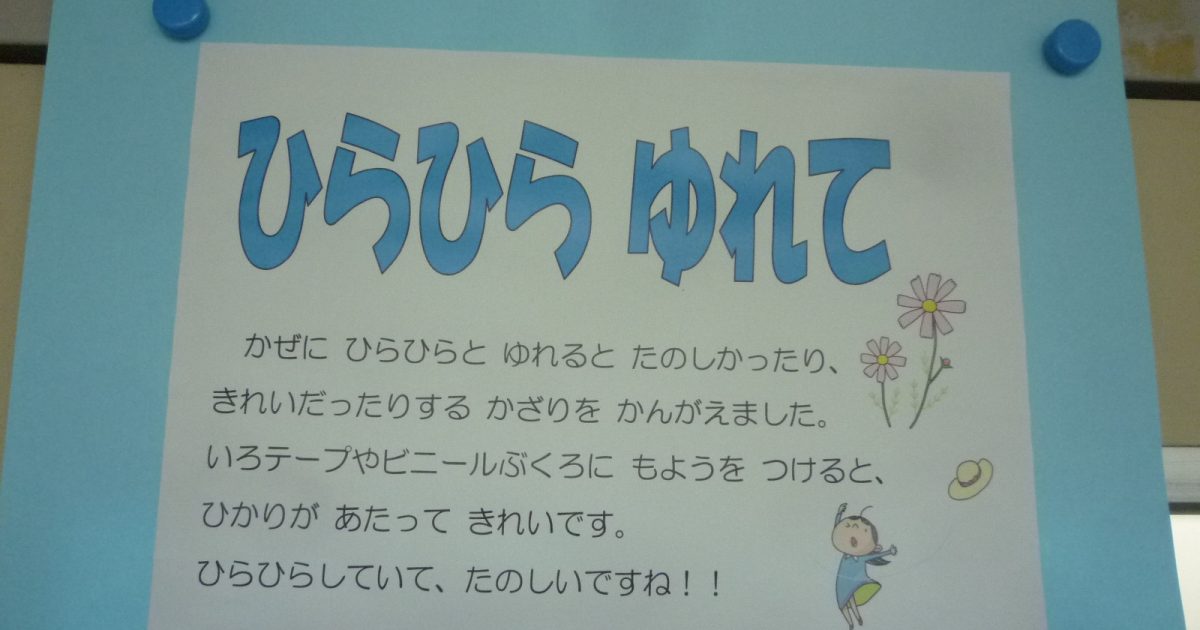 ひらひら ゆれて
かぜに ひらひらと ゆれると たのしかったり、
きれいだったりする かざりを かんがえました。
いろテープやビニールぶくろに もようを つけると、
ひかりが あたって きれいです。
ひらひらしていて、たのしいですね！！